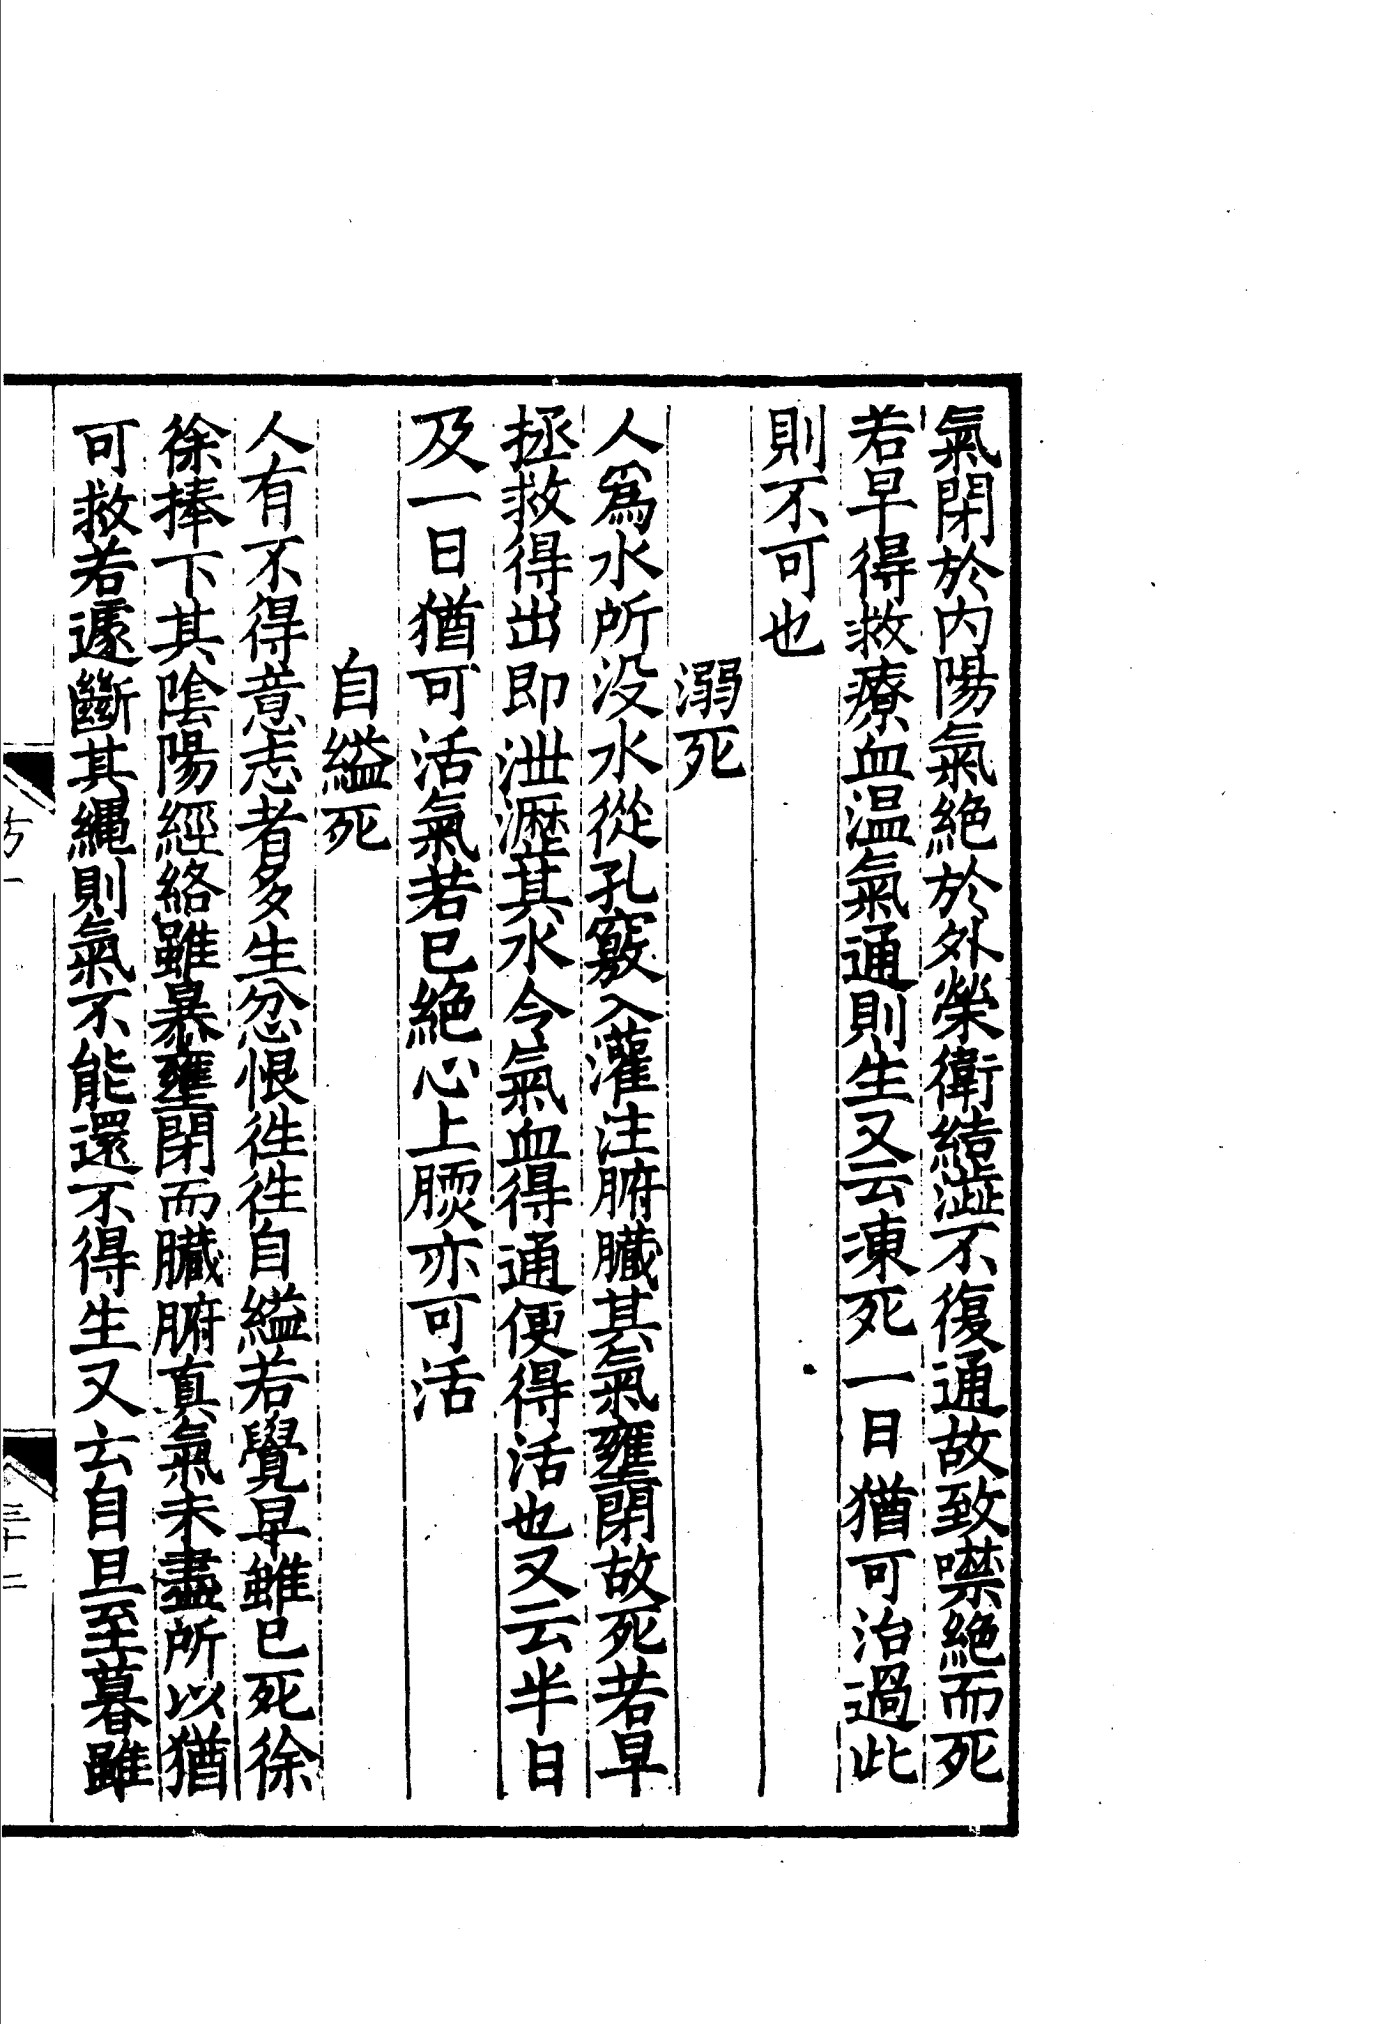 氣閉於内陽氣絶於外榮衛結澁不復通故致噤絶而死
若早得救療血温氣通則生又云凍死一日猶可治過此
則不可也
溺死
人爲水所没水從孔竅入灌注腑臓其氣壅閉故死若早
拯救得出即泄瀝其水令氣血得通便得活也又云半日
及一日猶可活氣若已絶心上㬉亦可活
自縊死
人有不得意志者多生忿恨徃徃自縊若覺早雖已死徐
徐捧下其陰陽經絡雖暴壅閉而臓腑真氣未盡所以猶
可救若遽斷其繩則氣不能還不得生又云自旦至暮雖
三十二